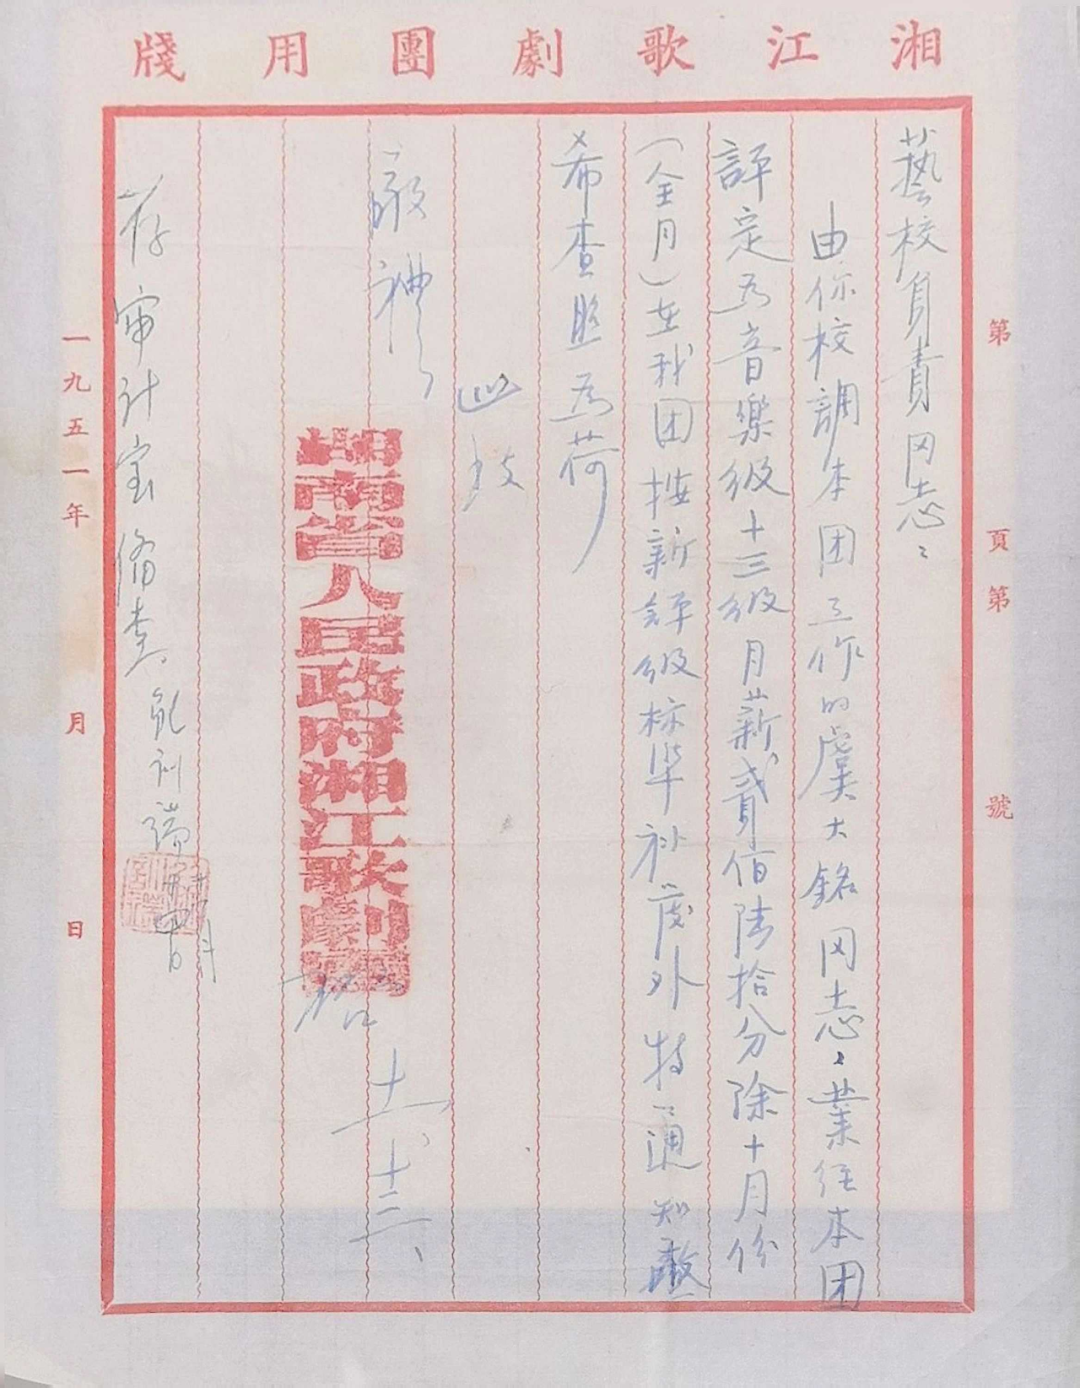 湘江歌劇團用牋
第 頁第 號
藝校負責同志：
由你校調本团工作的虞大銘同志，業经本团
評定为音樂级十三级月薪貳佰陆拾分除十月份
（全月）在我团按新評级标準补發外特通知
希查照为荷
此致
敬禮
湖南省人民政府湘江歌劇團
十一、十三、
存審計室備查
一九五一年 月 日